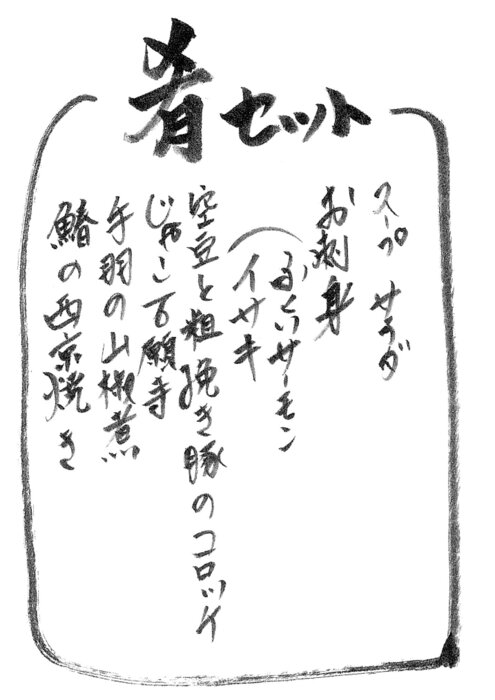 肴セット
スープ サラダ
お刺身
ふくいサーモン
イサキ
空豆と粗挽き豚のコロッケ
じゃこ万願寺
手羽の山椒煮
鰆の西京焼き